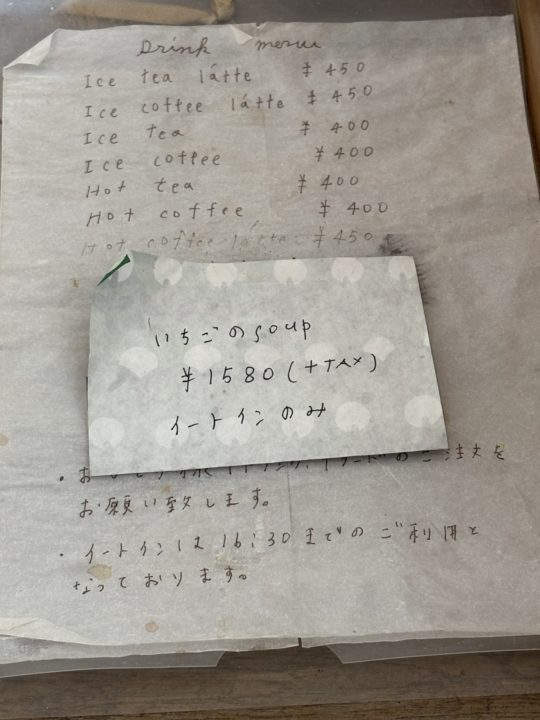 Drink menu
Ice tea látte ¥450
Ice coffee látte ¥450
Ice tea ¥400
Ice coffee ¥400
Hot tea ¥400
Hot coffee ¥400
Hot coffee látte ¥450
いちごのsoup
¥1580(+TAX)
イートインのみ
のご注文を
お願い致します。
・イートインは16:30までのご利用と
なっております。